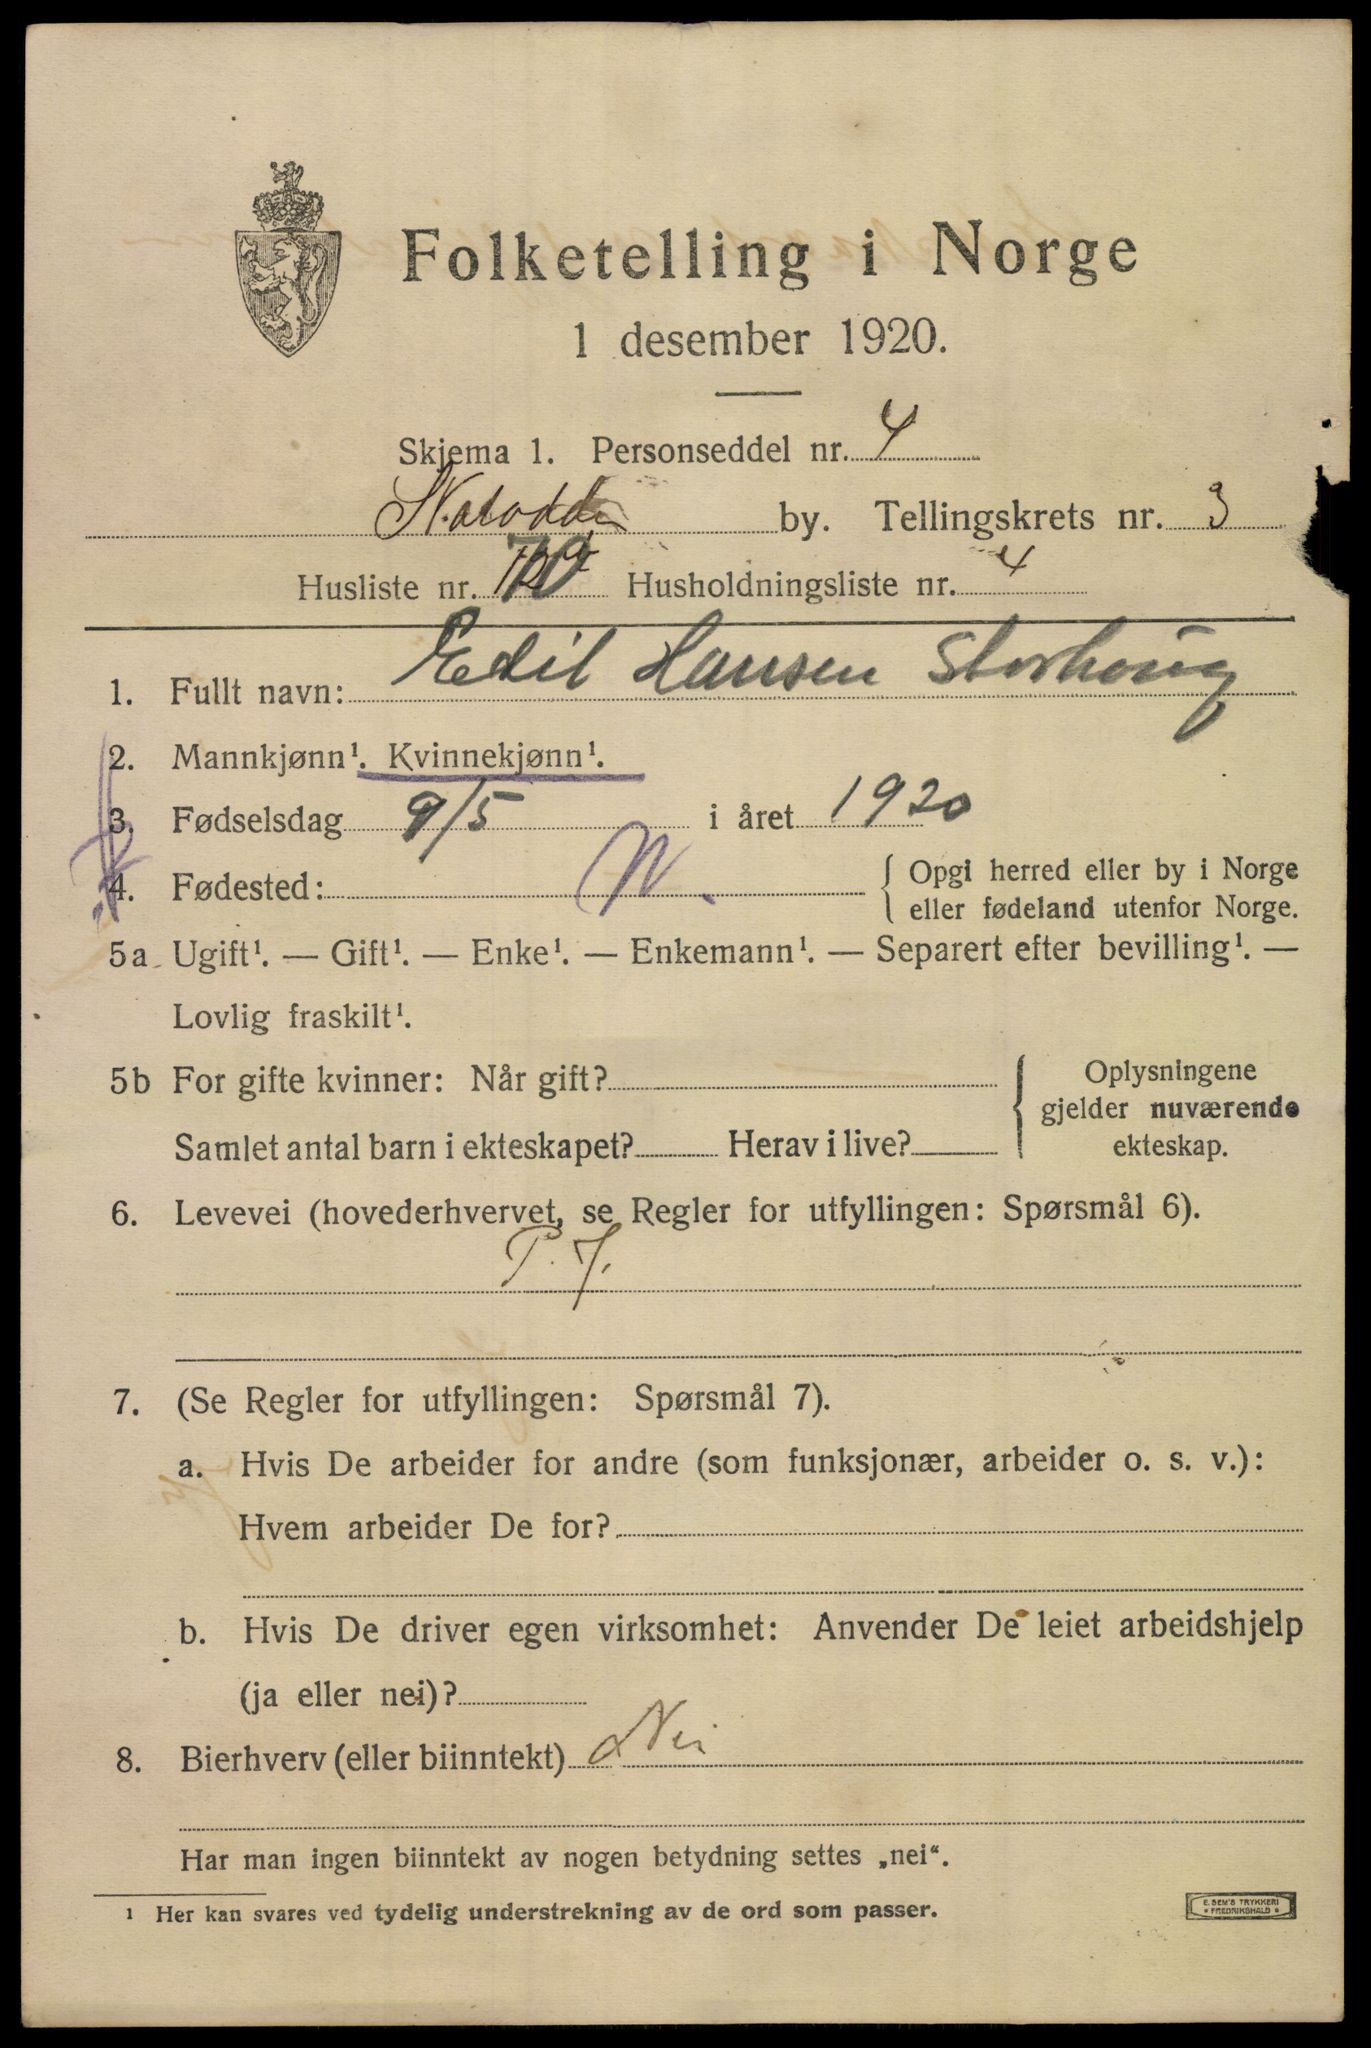 Folketelling i Norge
1 desember 1920.
Skjema 1. Personseddel nr. 4
Notodden by. Tellingskrets nr. 3
Husliste nr. 70 Husholdningsliste nr. 4
1. Fullt navn: Edil Hansen Storhoug
2. Mannkjønn¹. Kvinnekjønn¹.
3. Fødselsdag 9/5 i året 1920
4. Fødested: N. { Opgi herred eller by i Norge
eller fødeland utenfor Norge.
5a Ugift¹. — Gift¹. — Enke¹. — Enkemann¹. — Separert efter bevilling¹. —
Lovlig fraskilt¹.
5b For gifte kvinner: Når gift? { Oplysningene
gjelder nuværende
Samlet antal barn i ekteskapet? Herav i live? ekteskap.
6. Levevei (hovederhvervet, se Regler for utfyllingen: Spørsmål 6).
P. J.
7. (Se Regler for utfyllingen: Spørsmål 7).
a. Hvis De arbeider for andre (som funksjonær, arbeider o. s. v.):
Hvem arbeider De for?
b. Hvis De driver egen virksomhet: Anvender De leiet arbeidshjelp
(ja eller nei)?
8. Bierhverv (eller biinntekt) Nei
Har man ingen biinntekt av nogen betydning settes „nei“.
¹ Her kan svares ved tydelig understrekning av de ord som passer.
E. SEM'S TRYKKERI
* FREDRIKSHALD *